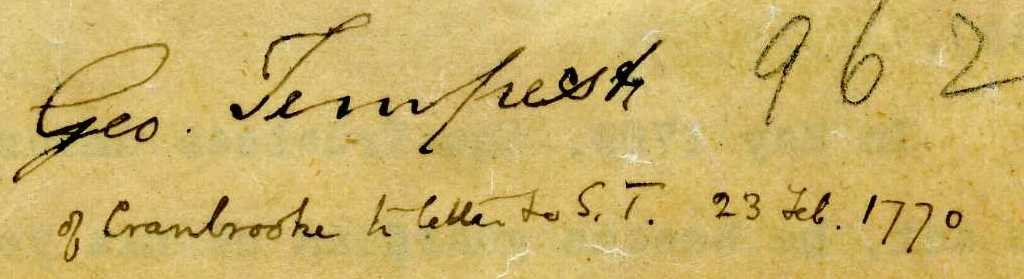 Geo. Tempest 962
of Cranbrooke to letter to S. T. 23 Feb. 1770